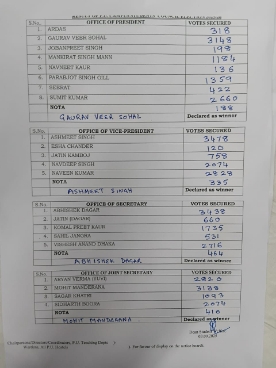 S.No. OFFICE OF PRESIDENT VOTES SECURED
1. ARDAS 318
2. GAURAV VEER SOHAL 3148
3. JOBANPREET SINGH 198
4. MANKIRAT SINGH MANN 1184
5. NAVNEET KAUR 136
6. PARABJOT SINGH GILL 1359
7. SEERAT 422
8. SUMIT KUMAR 2660
NOTA 188
GAURAV VEER SOHAL Declared as winner
S.No. OFFICE OF VICE-PRESIDENT VOTES SECURED
1. ASHMEET SINGH 3478
2. ESHA CHANDER 120
3. JATIN KAMBOJ 758
4. NAVDEEP SINGH 2074
5. NAVEEN KUMAR 2828
NOTA 335
ASHMEET SINGH Declared as winner
S.No. OFFICE OF SECRETARY VOTES SECURED
1. ABHISHEK DAGAR 3438
2. JATIN 660
3. KOMAL PREET KAUR 1725
4. SAHIL JANGRA 531
5. VISHESH ANAND DHAKA 2716
NOTA 464
ABHISHEK DAGAR Declared as winner
S.No. OFFICE OF JOINT SECRETARY VOTES SECURED
1. ARYAN VERMA 2920
2. MOHIT MANDERANA 3138
3. SAGAR KHATRI 1097
4. SIDHARTH BOORA 2074
NOTA 410
MOHIT MANDERANA Declared as winner